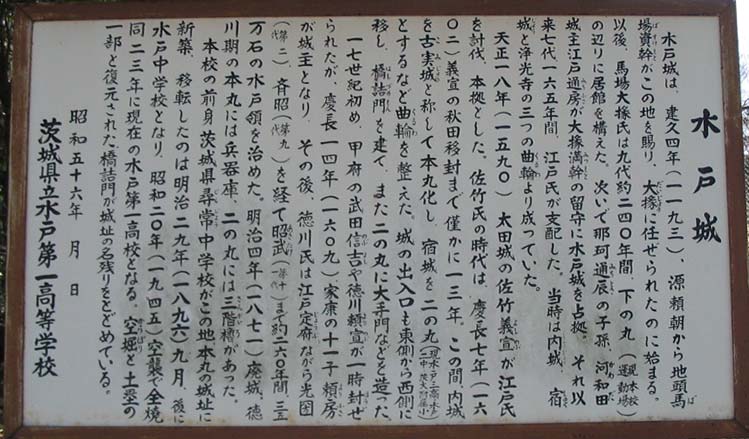 水戸城
水戸城は、建久四年（一一九三）、源頼朝から地頭馬
場資幹がこの地を賜り、大掾に任せられたのに始まる。
以後、馬場大掾氏は九代約二四〇年間、下の丸（現本校運動場）
の辺りに居館を構えた。次いで那珂通辰の子孫、河和田
城主江戸通房が大掾満幹の留守に水戸城を占拠、それ以
来七代一六五年間、江戸氏が支配した。当時は内城、宿
城と浄光寺の三つの曲輪より成っていた。
天正一八年（一五九〇）太田城の佐竹義宣が江戸氏
を討伐、本拠とした。佐竹氏の時代は、慶長七年（一六
〇二）義宣の秋田移封まで僅かに一三年、この間、内城
を古実城と称して本丸化し、宿城を二の丸
とするなど曲輪を整えた。城の出入口も東側から西側に
移し、橋詰門を建て、また二の丸に大手門などを造った。
一七世紀初め、甲府の武田信吉や徳川頼宣が一時封ぜ
られたが、慶長一四年（一六〇九）家康の十一子頼房
が城主となり、その後、徳川氏は江戸定府ながら光圀
（第二代）、斉昭（第九代）を経て昭武（第十一代）まで約二六〇年間、三五
万石の水戸領を治めた。明治四年（一八七一）廃城、徳
川期の本丸には兵器庫、二の丸には三階櫓があった。
本校の前身茨城県尋常中学校がこの地本丸の城址に
新築、移転したのは明治二九年（一八九六）九月、後に
水戸中学校となり、昭和二〇年（一九四五）空襲で全焼
同二三年に現在の水戸第一高校となる。空堀と土塁の
一部と復元された橋詰門が城址の名残りをとどめている。
昭和五十六年　月　日
茨城県立水戸第一高等学校